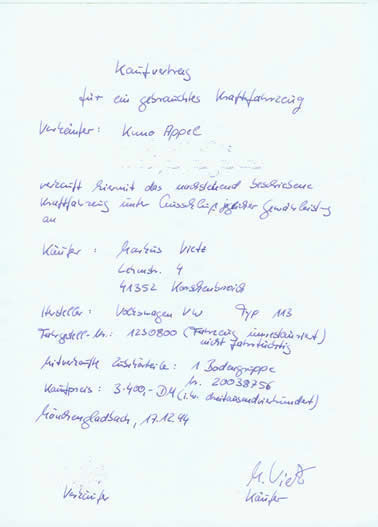 Kaufvertrag
für ein gebrauchtes Kraftfahrzeug
Verkäufer: Kuno Appel
verkauft hiermit das nachstehend beschriebene
Kraftfahrzeug unter Ausschluß jeglicher Gewährleistung
an
Käufer: Markus Vietz
4
41352 Korschenbroich
Hersteller: Volkswagen VW Typ 113
Fahrgestell-Nr.: 1230800 (Fahrzeug unrestauriert)
nicht fahrtüchtig
Mitverkaufte Zubehörteile: 1 Bodengruppe
Nr. 20038756
Kaufpreis: 3.400,- DM (i.W. dreitausendvierhundert)
Mönchengladbach, 17.12.94
M. Vietz
Verkäufer Käufer